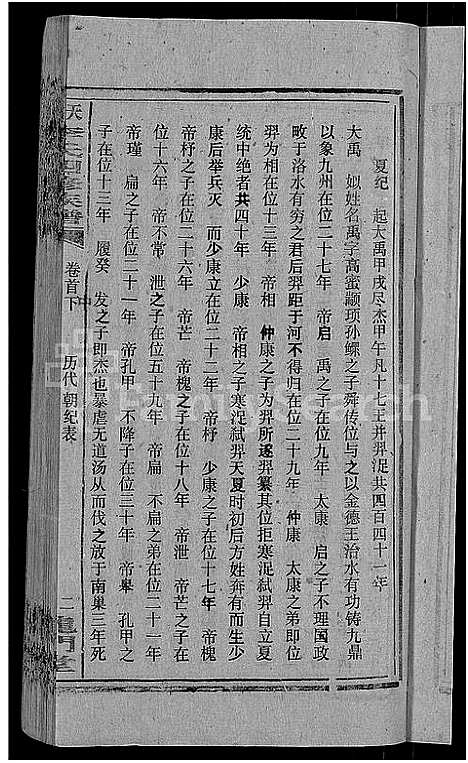 夏纪　起大禹甲戌尽杰甲午凡十七王并羿浞共四百四十一年
大禹　姒姓名禹字高蜜颛顼孙鲧之子舜传位与之以金德王治水有功铸九鼎
以象九州在位二十七年　帝启　禹之子在位九年　太康　启之子不理国政
畋于洛水有穷之君后羿距于河不得归在位二十九年　仲康　太康之弟即位
羿为相在位十三年　帝相　仲康之子为羿所逐羿篡其位拒寒浞弑羿自立夏
统中绝者共四十年　少康　帝相之子寒浞弑羿天夏时初后方姓奔有而生少
康后举兵灭　而少康立在位二十二年　帝杼　少康之子在位十七年　帝槐
帝杼之子在位二十六年　帝芒　帝槐之子在位十八年　帝泄　帝芒之子在
位十六年　帝不常　泄之子在位五十九年　帝扁　不扁之弟在位二十一年
帝瑾　扁之子在位二十一年　帝孔甲　不降子在位三十年　帝皋　孔甲之
子在位十三年　履癸　发之子即杰也暴虐无道汤从而伐之放于南巢三年死
卷首下　历代朝纪表　二